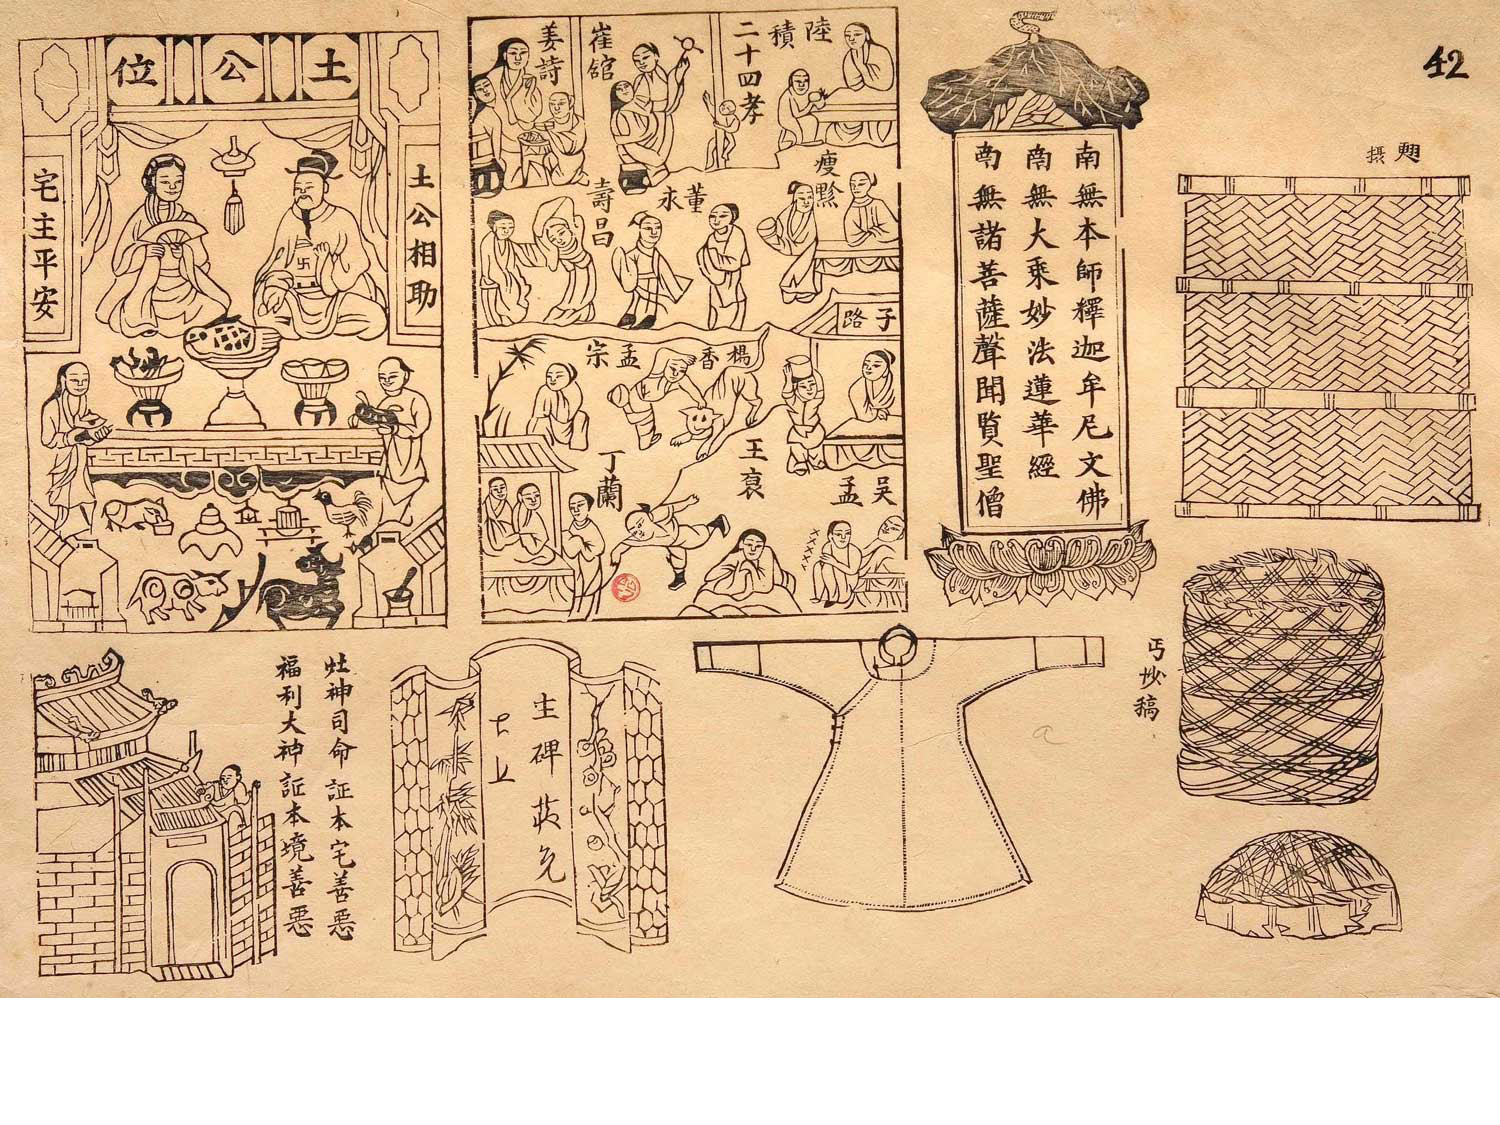 42
土公位
土公相助
宅主平安
二十四孝
陸積
崔舘
姜詩
瘦黔
董永
壽昌
子路
楊香
孟宗
王裒
丁蘭
吴孟
南無本師釋迦牟尼文佛
南無大乘妙法蓮華經
南無諸菩薩聲聞賢聖僧
灶神司命 証本宅善惡
福利大神 証本境善惡
丐炒稿